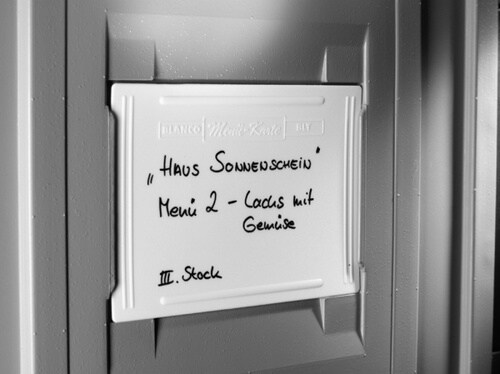 BLANCO Menü-Karte
„HAUS SONNENSCHEIN"
Menü 2 – Lachs mit
Gemüse
III. Stock